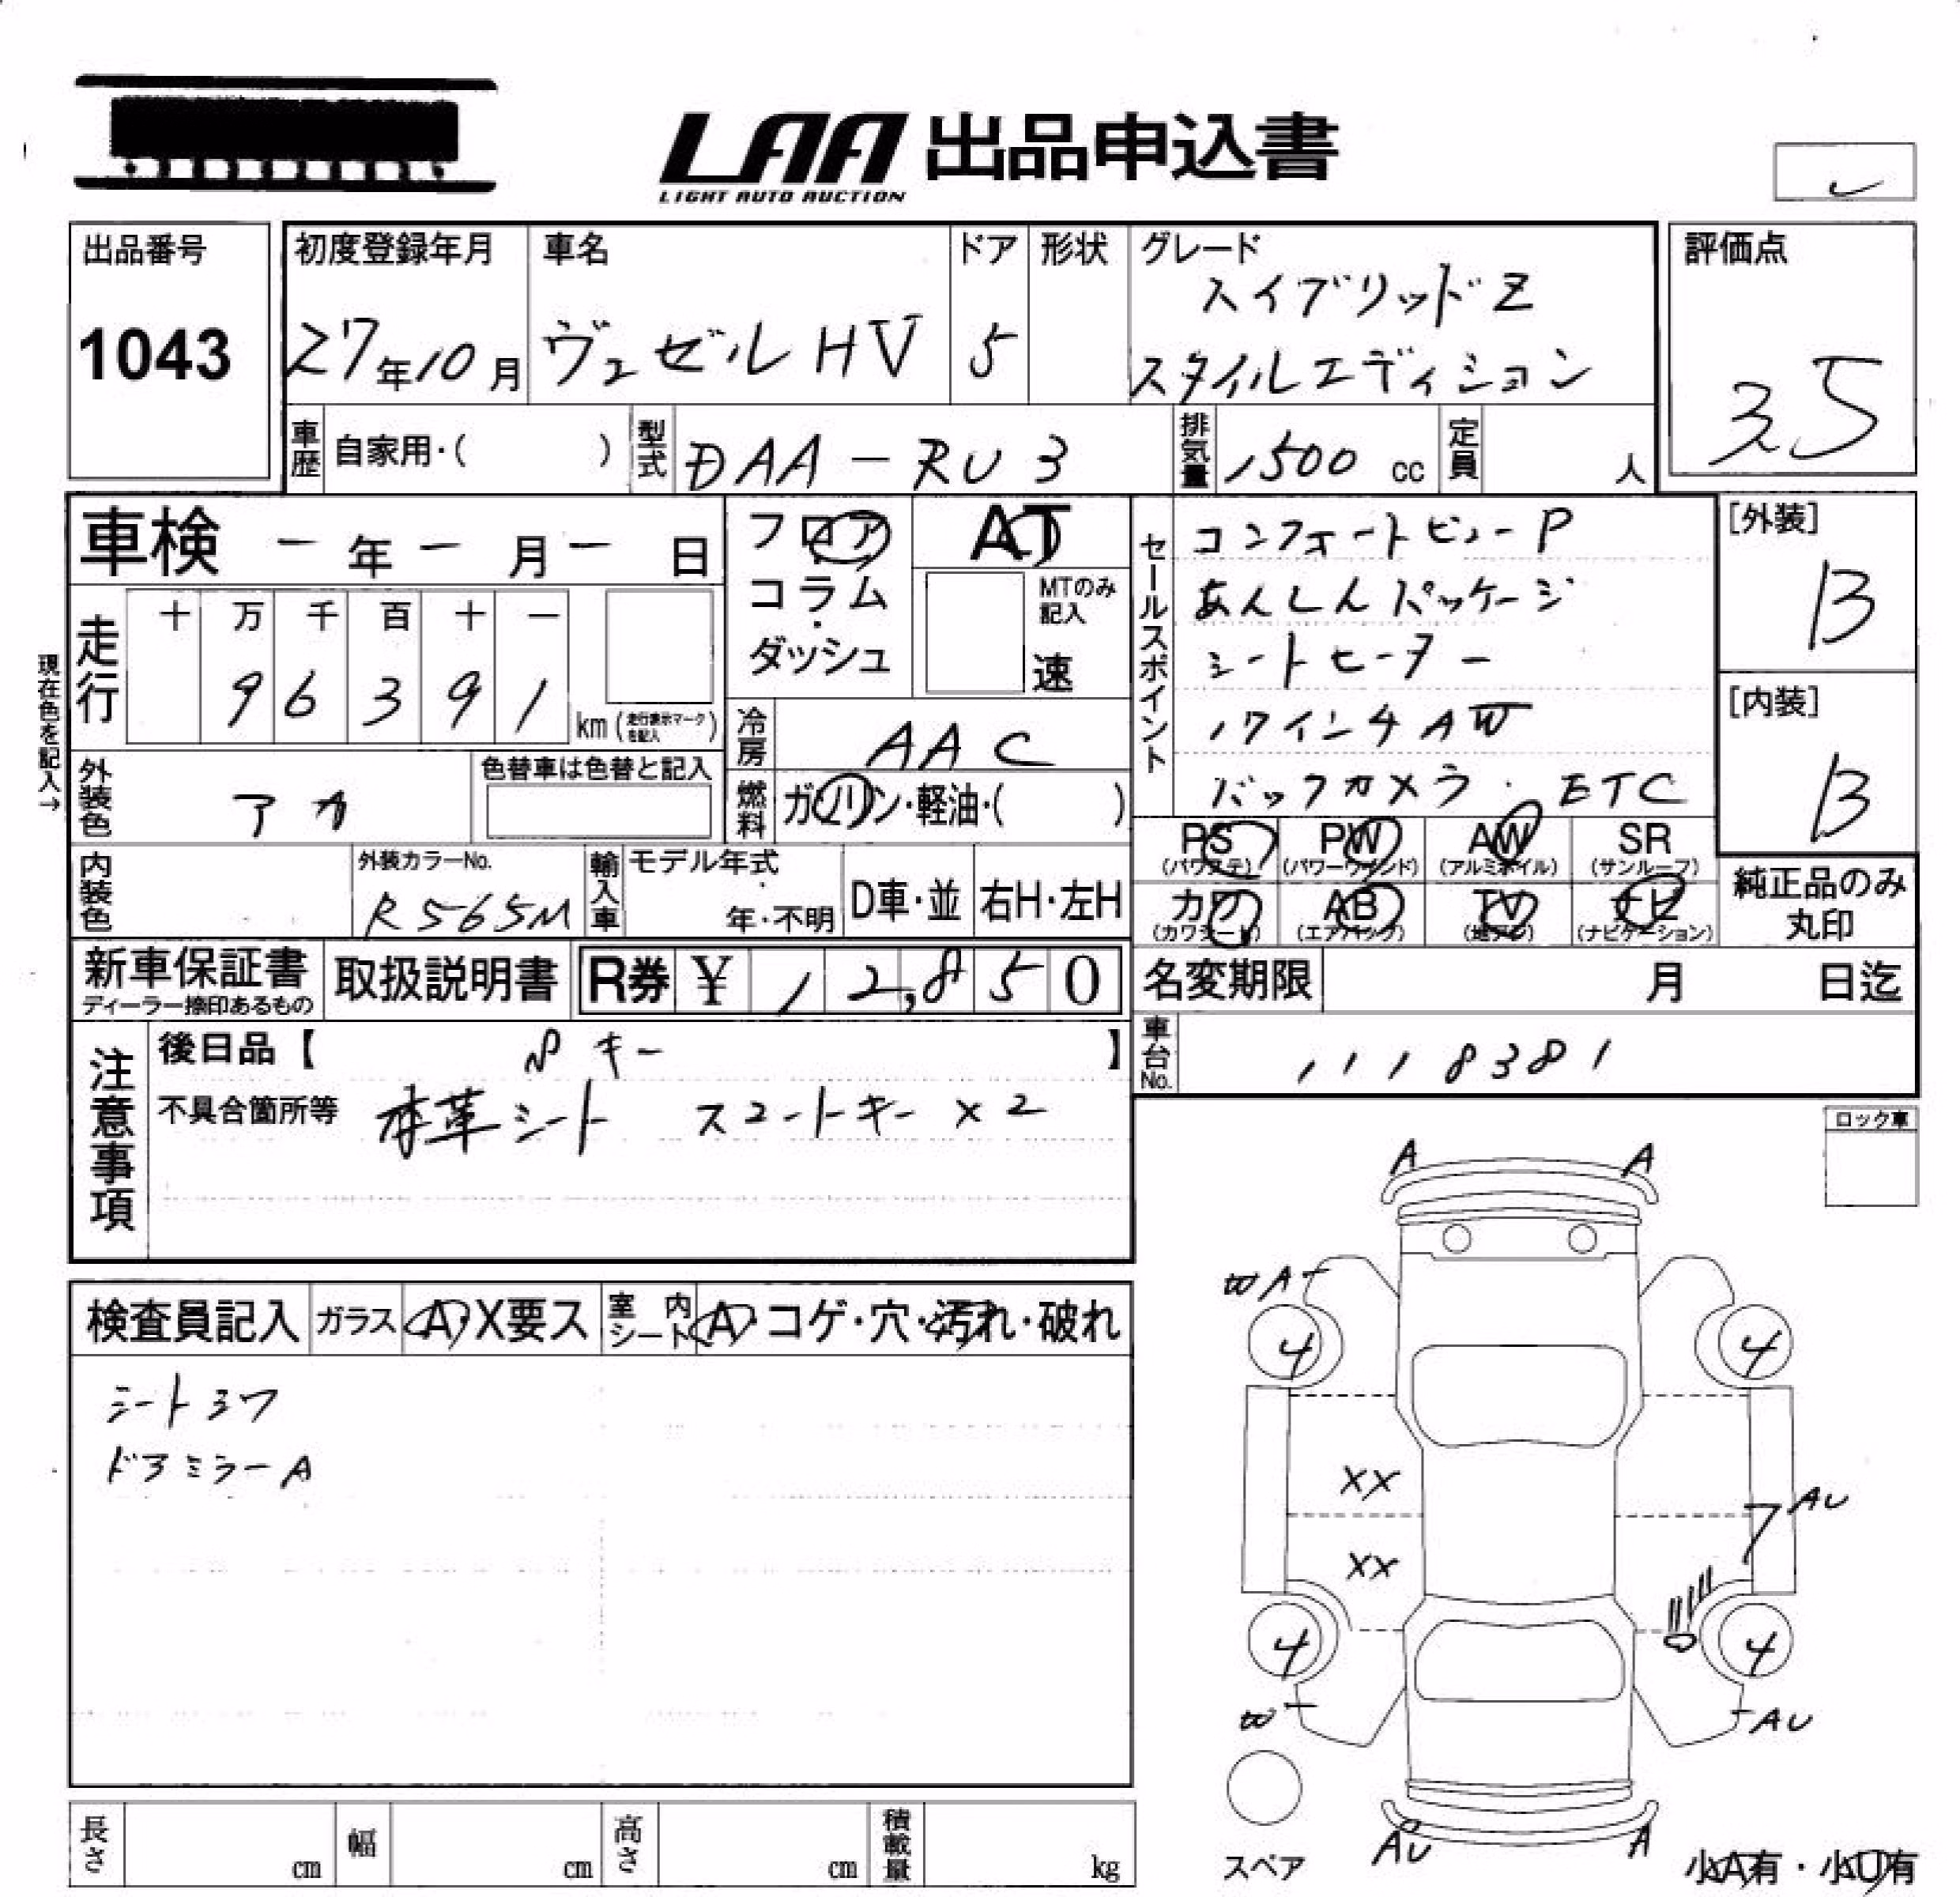 LAA 出品申込書
LIGHT AUTO AUCTION
出品番号
1043
初度登録年月
27年10月
車名
ヴェゼルHV
ドア
5
形状
グレード
ハイブリッドZ
スタイルエディション
評価点
3.5
車歴 自家用・( )
型式 DAA-RU3
排気量 1500 cc
定員 人
車検 -年-月-日
フロア
コラム
ダッシュ
AT
MTのみ記入
速
セールスポイント
コンフォートビューP
あんしんパッケージ
シートヒーター
17インチAW
バックカメラ・ETC
[外装]
B
[内装]
B
現在色を記入→
走行 十 万 千 百 十 一
9 6 3 9 1 km (走行表示マークを記入)
冷房 AAC
外装色 アカ
色替車は色替と記入
燃料 ガソリン・軽油・( )
内装色
外装カラーNo.
R565M
輸入車 モデル年式
年・不明
D車・並
右H・左H
PS (パワステ)
PW (パワーウインド)
AW (アルミホイル)
SR (サンルーフ)
カワ (カワシート)
AB (エアバック)
TV (地デジ)
ナビ (ナビゲーション)
純正品のみ丸印
新車保証書
ディーラー捺印あるもの
取扱説明書
R券 ¥ 12,850
名変期限 月 日迄
車台No. 1118381
注意事項
後日品【 キー 】
不具合箇所等 本革シート スマートキー×2
ロック車
検査員記入
ガラス A・X要ス
室内シート A・コゲ・穴・汚れ・破れ
シートスワ
ドアミラーA
A A
WA
4 4
XX
AU
XX
4 4
W AU
AU A
スペア
小A有・小U有
長さ cm
幅 cm
高さ cm
積載量 kg